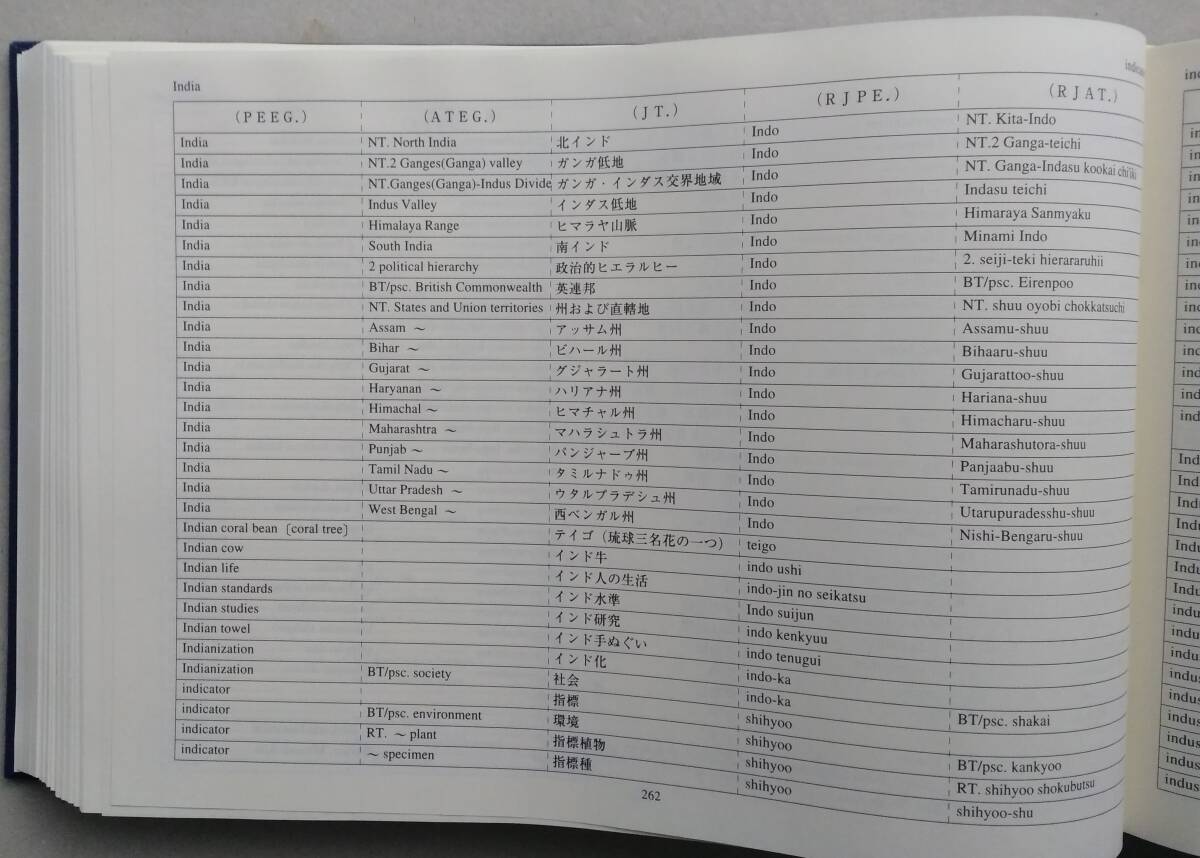 India
(PEEG.) (ATEG.) (JT.) (RJPE.) (RJAT.)
India NT. North India 北インド Indo NT. Kita-Indo
India NT.2 Ganges(Ganga) valley ガンガ低地 Indo NT.2 Ganga-teichi
India NT.Ganges(Ganga)-Indus Divide ガンガ・インダス交界地域 Indo NT. Ganga-Indasu kookai chi'iki
India Indus Valley インダス低地 Indo Indasu teichi
India Himalaya Range ヒマラヤ山脈 Indo Himaraya Sanmyaku
India South India 南インド Indo Minami Indo
India 2 political hierarchy 政治的ヒエラルヒー Indo 2. seiji-teki hierararuhii
India BT/psc. British Commonwealth 英連邦 Indo BT/psc. Eirenpoo
India NT. States and Union territories 州および直轄地 Indo NT. shuu oyobi chokkatsuchi
India Assam ～ アッサム州 Indo Assamu-shuu
India Bihar ～ ビハール州 Indo Bihaaru-shuu
India Gujarat ～ グジャラート州 Indo Gujarattoo-shuu
India Haryanan ～ ハリアナ州 Indo Hariana-shuu
India Himachal ～ ヒマチャル州 Indo Himacharu-shuu
India Maharashtra ～ マハラシュトラ州 Indo Maharashutora-shuu
India Punjab ～ パンジャーブ州 Indo Panjaabu-shuu
India Tamil Nadu ～ タミルナドゥ州 Indo Tamirunadu-shuu
India Uttar Pradesh ～ ウタルプラデシュ州 Indo Utarupuradesshu-shuu
India West Bengal ～ 西ベンガル州 Indo Nishi-Bengaru-shuu
Indian coral bean〔coral tree〕 テイゴ（琉球三名花の一つ） teigo
Indian cow インド牛 indo ushi
Indian life インド人の生活 indo-jin no seikatsu
Indian standards インド水準 Indo suijun
Indian studies インド研究 indo kenkyuu
Indian towel インド手ぬぐい indo tenugui
Indianization インド化 indo-ka
Indianization BT/psc. society 社会 indo-ka BT/psc. shakai
indicator 指標 shihyoo
indicator BT/psc. environment 環境 shihyoo BT/psc. kankyoo
indicator RT. ～ plant 指標植物 shihyoo RT. shihyoo shokubutsu
indicator ～ specimen 指標種 shihyoo shihyoo-shu
262